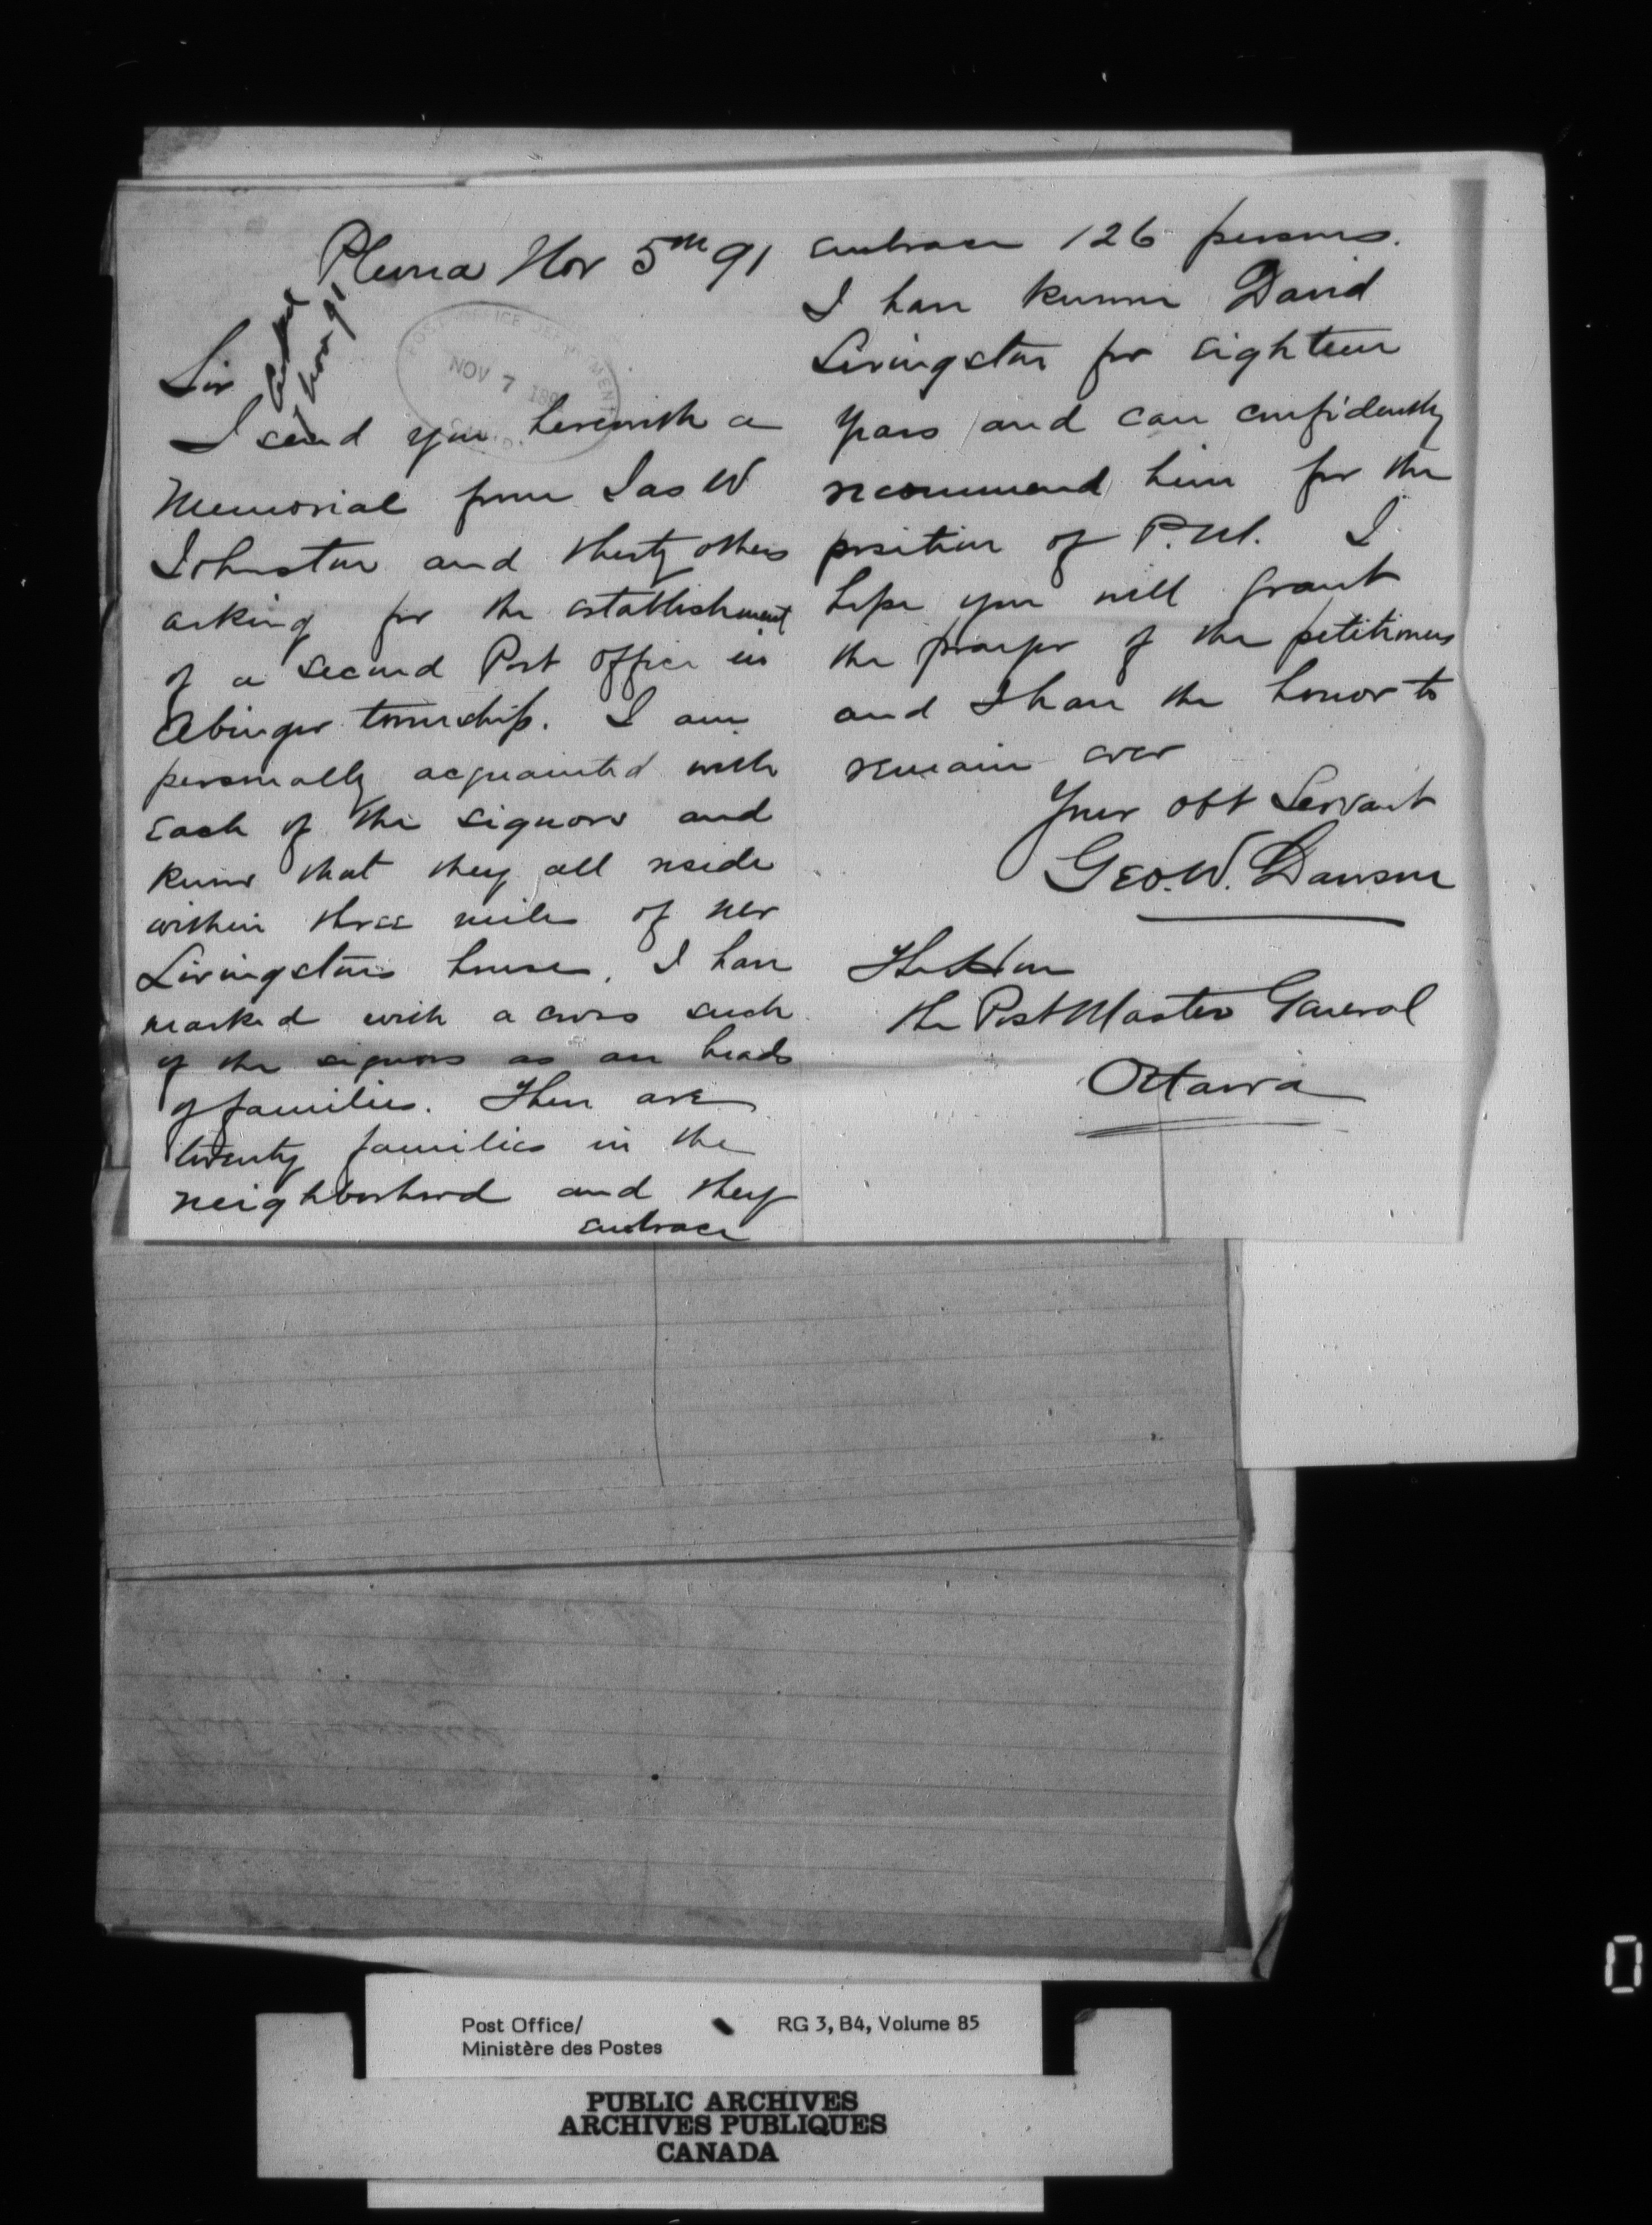 Plevna Nov 5th 91
POST OFFICE DEPARTMENT
NOV 7 189
Nov 91
Sir
I send you herewith a
Memorial from Jas W
Johnston and thirty others
asking for the establishment
of a second Post Office in
Abinger township. I am
personally acquainted with
each of the signors and
know that they all reside
within three miles of
Livingstons house. I have
marked with a cross such
of the signors as are heads
of families. There are
twenty families in the
neighborhood and they
embrace
embrace 126 persons.
I have known David
Livingston for eighteen
years and can confidently
recommend him for the
position of P.M. I
hope you will grant
the prayer of the petitioners
and I have the honor to
remain ever
Your obt Servant
Geo. W. Dawson
The Hon
the Post Master General
Ottawa
Post Office/
Ministère des Postes
RG 3, B4, Volume 85
PUBLIC ARCHIVES
ARCHIVES PUBLIQUES
CANADA
0